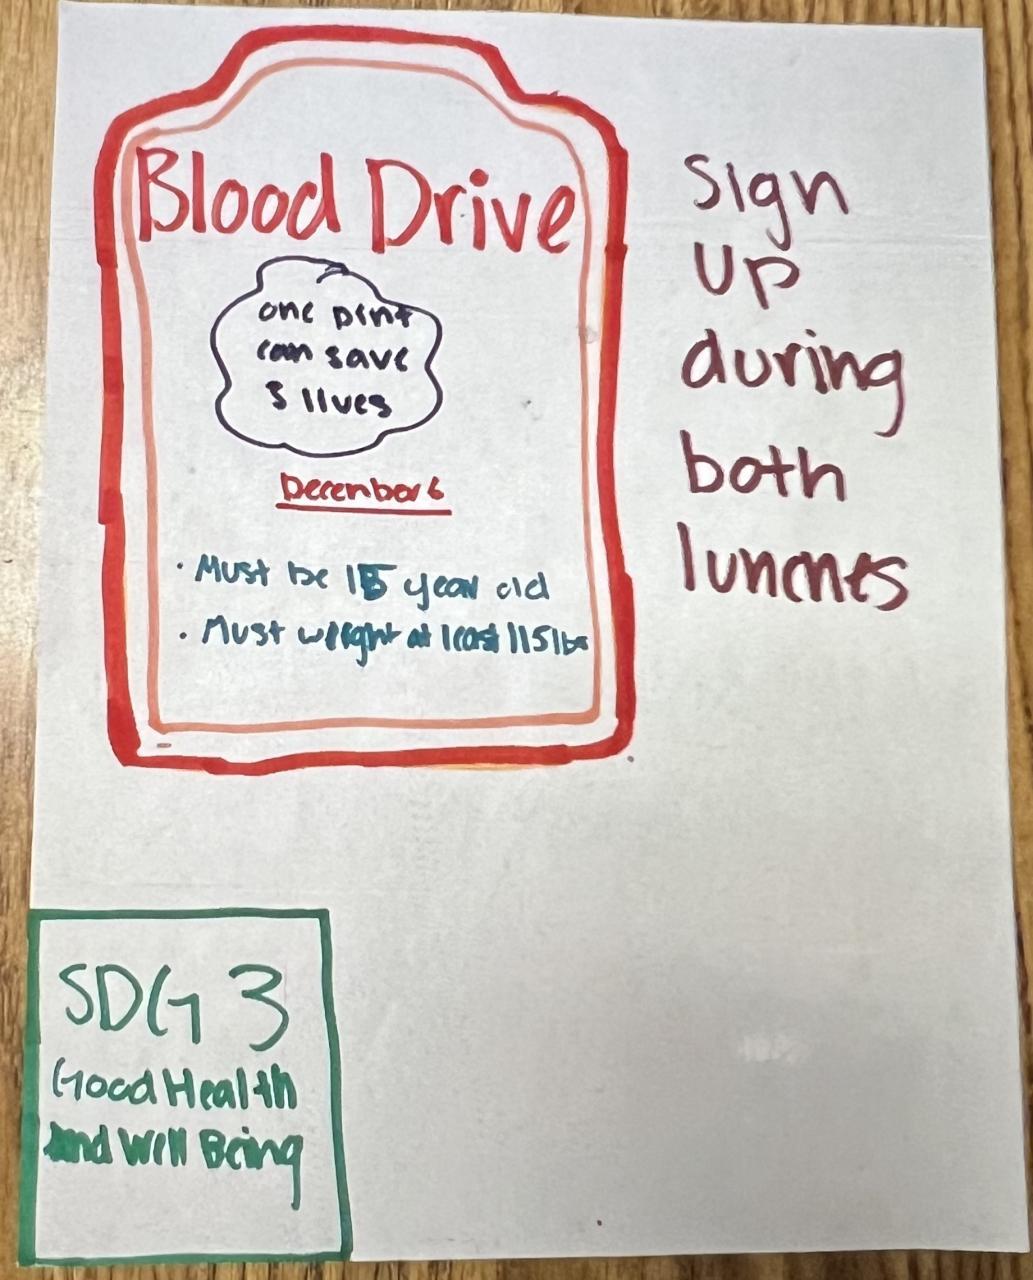 Blood Drive
one pint
can save
3 lives
December 6
· Must be 15 year old
· Must weight at least 115 lbs
Sign
Up
during
both
lunches
SDG 3
Good Health
and Well Being